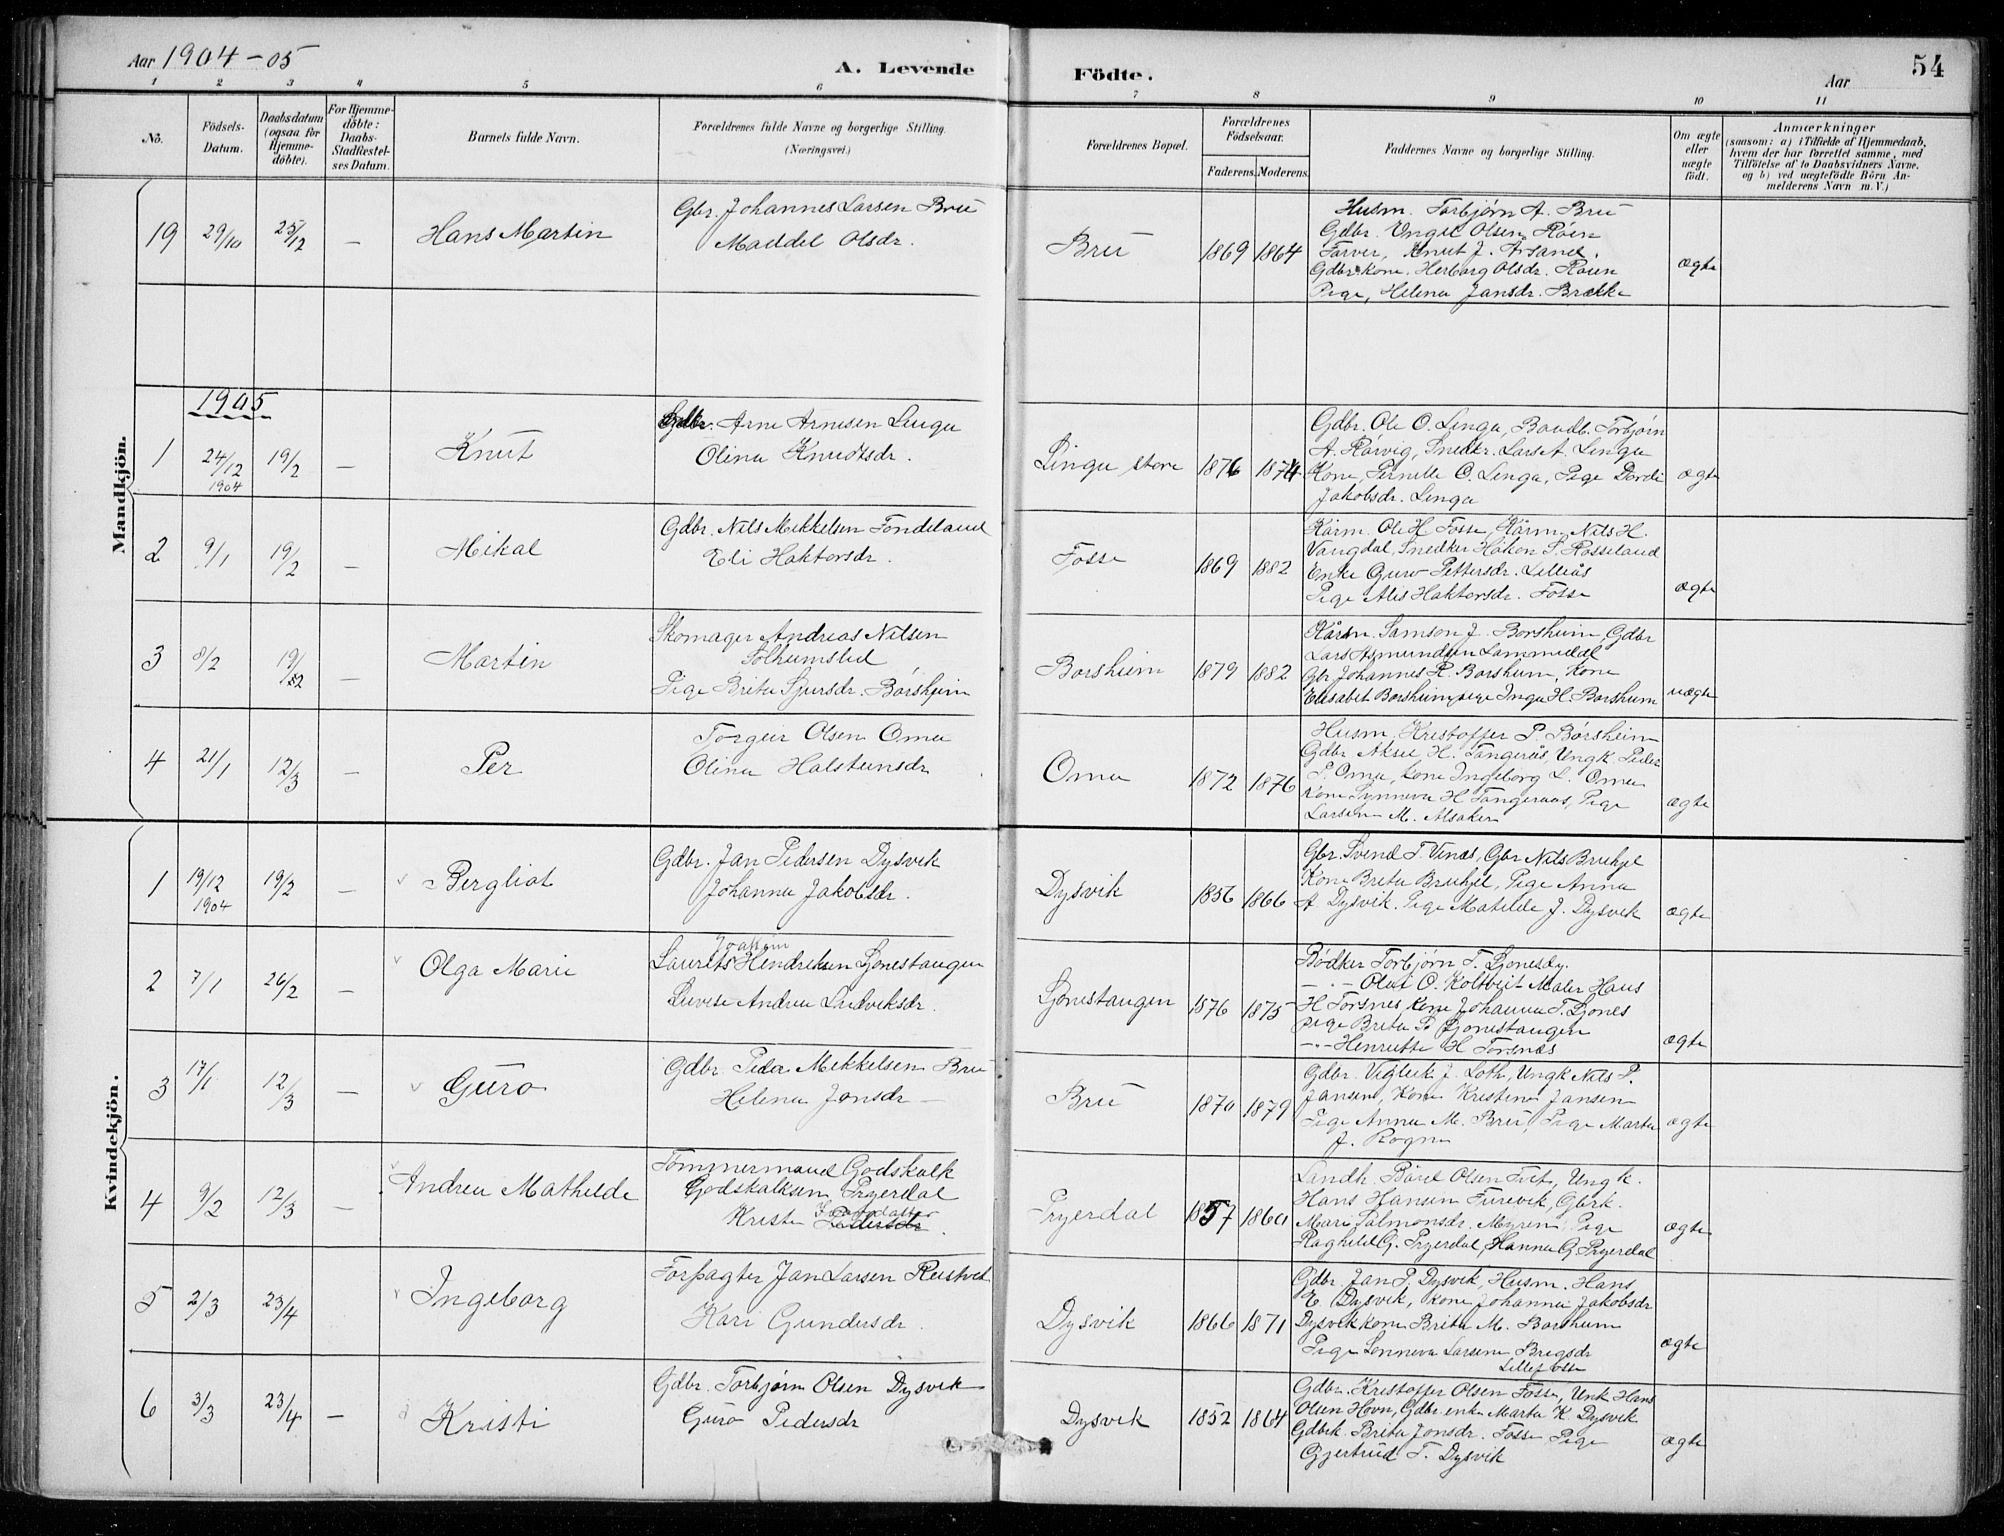 Aar 1904-05
A. Levende
Födte.
Aar
54
1 2 3 4 5 6 7 8 9 10 11
No.
Födsels-
Datum.
Daabsdatum
(ogsaa for
Hjemme-
döbte).
For Hjemme-
döbte:
Daabs-
Stadfæstel-
ses Datum.
Barnets fulde Navn.
Forældrenes fulde Navne og borgerlige Stilling.
(Næringsvei.)
Forældrenes Bopæl.
Forældrenes
Födselsaar.
Faderens. Moderens.
Faddernes Navne og borgerlige Stilling.
Om ægte
eller
uægte
födt.
Anmærkninger
(saasom: a) i Tilfælde af Hjemmedaab,
hvem der har forrettet samme, med
Tilföielse af to Daabsvidners Navne.
og b) ved uægtefödte Börn An-
melderens Navn m. V.)
Mandkjön.
19 29/10 25/12 – Hans Martin
Gbr. Johannes Larsen Bru
Maddel Olsdr.
Bru 1869 1864
Husm. Torbjørn A. Bru
Gdbr. Olsen Röen
Farver, Knut J. Årsand.
Gdbrkone. Herborg Olsdr. Röen
Pige, Helena Jansdr. Brække
ægte
1905
1 24/12 1904 19/2 – Knut
Gdbr. Arne Arnesen Linga
Olina Knudtsdr.
Linga store 1876 1874
Gdbr. Ole O. Linga, Torbjørn
A. Rørvig, Snedkr. Lars A. Linga
Kone, Pernille O. Linga, Pige Dordi
Jakobsdr. Linga
ægte
2 9/1 19/2 – Mikal
Gdbr. Nils Mikkelsen Tondeland
Eli Haktorsdr.
Fosse 1869 1882
Kårm. Ole H. Fosse, Kårm. Nils H.
Vangdal, Snedker Håkon S. Rosseland
Enke Guro Pettersdr. Lilleås
Pige Alis Haktorsdr. Fosse
ægte
3 8/2 19/2 – Martin
Skomager Andreas Nilsen
Solheimslid
Pige Brita Sjursdr. Børsheim
Borsheim 1879 1882
Kårm. Samson J. Borsheim, Gdbr
Lars Asmundsen
Gbr Johannes R. Borsheim, Kone
Elisabet Borsheim, pige Inga H. Borsheim
uægte
4 21/1 12/3 – Per
Torgeir Olsen Oma
Olina Halstensdr
Oma 1872 1876
Husm. Kristoffer P. Børsheim
Gdbr Aksel H. Tangerås, Ungk. Peder
P. Oma, Kone Ingeborg L. Oma
Kone Synneva H Tangeraas, Pige
Larsen M. Alsaker
ægte
Kvindekjön.
1 19/12 1904 19/2 – Bergliot
Gdbr. Jan Pedersen Dysvik
Johanna Jakobsdr.
Dysvik 1856 1866
Gbr. Svend T. Vines, Gbr Nils Bruhjel
Kone Brita Bruhjel, Pige Anna
A Dysvik. Pige Matilde J. Dysvik
ægte
2 7/1 26/2 – Olga Marie
Joakim
Laurits Hendriksen Ljonestangen
Luvise Andrea Ludviksdr.
Ljonestangen 1876 1875
Bødker Torbjørn T. Ljonesøy
– · – O. Koltveit Maler Hans
H Torsnes Kone Johanna T. Ljones
pige Brita P. Ljonestangen
– · – Henriette H Torsnæs
ægte
3 17/1 12/3 – Guro
Gdbr. Peder Mekkelsen Bru
Helena Jonsdr –
Bru 1870 1879
Gdbr. Vigleik J. Loth, Ungk Nils P.
Jansen, Kone Kristine Jansen
Pige Anna M. Bru, Pige Marta
J. Rogne
ægte
4 9/2 12/3 – Andrea Mathilde
Tømmermand Godskalk
Godskalksen Fryerdal
Kristi Jonsdatter
Fryerdal 1857 1860
Landh. Bård Olsen Tvet, Ungk.
Hans Hansen Furevik, Gbrk.
Mari Salmonsdr. Myren, Pige
Raghild G. Fryerdal, Hanna G. Fryerdal
ægte
5 2/3 23/4 Ingeborg
Forpagter Jan Larsen Reistved
Kari Gundersdr.
Dysvik 1866 1871
Gdbr. Jan P. Dysvik, Husm. Hans
E. Dysvik, Kone Johanna Jakobsdr
Dysvik kone Brita M. Borsheim
Pige Sonneva Larsen Brigsdr
Lillefosse
ægte
6 3/3 23/4 – Kristi
Gdbr. Torbjørn Olsen Dysvik
Guro Pedersdr
Dysvik 1852 1864
Gdbr. Kristoffer Olsen Fosse, Unk Hans
Olsen Hovn, Gdbr enk. Marta K. Dysvik
Gdbrk. Brita Jonsdr. Fosse Pige
Gjertrud T. Dysvik
ægte